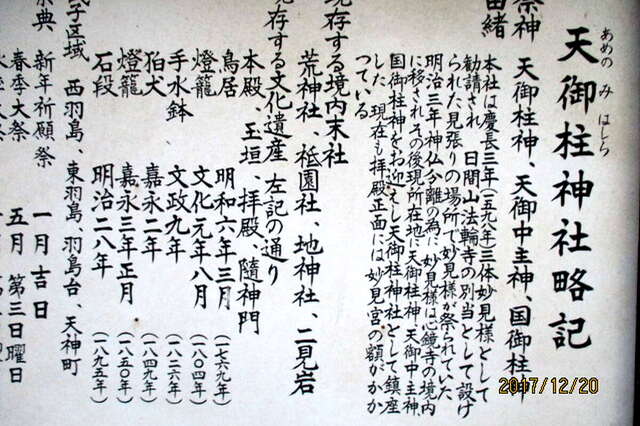 天御柱神社略記
あめの み はしら
祭神 天御柱神、天御中主神、国御柱神
由緒
本社は慶長三年(一五九八年)三体妙見様として
勧請され、日間山法輪寺の別当として設け
られた見張りの場所で妙見様が祭られていた
明治三年神仏分離の為に妙見様は心鏡寺の境内
に移されその後現所在地に天御柱神、天御中主神、
国御柱神をお迎えし天御柱神社として鎮座
した 現在も拝殿正面には妙見宮の額がかか
っている
現存する境内末社
荒神社、祗園社、地神社、二見岩
現存する文化遺産 左記の通り
本殿、玉垣、拝殿、隨神門
鳥居 明和六年三月 (一七六九年)
燈籠 文化元年八月 (一八〇四年)
手水鉢 文政九年 (一八二六年)
狛犬 嘉永二年 (一八四九年)
燈籠 嘉永三年正月 (一八五〇年)
石段 明治二八年 (一八九五年)
氏子区域 西羽島、東羽島、羽島台、天神町
祭典 新年祈願祭 一月吉日
春季大祭 五月 第三日曜日
2017/12/20